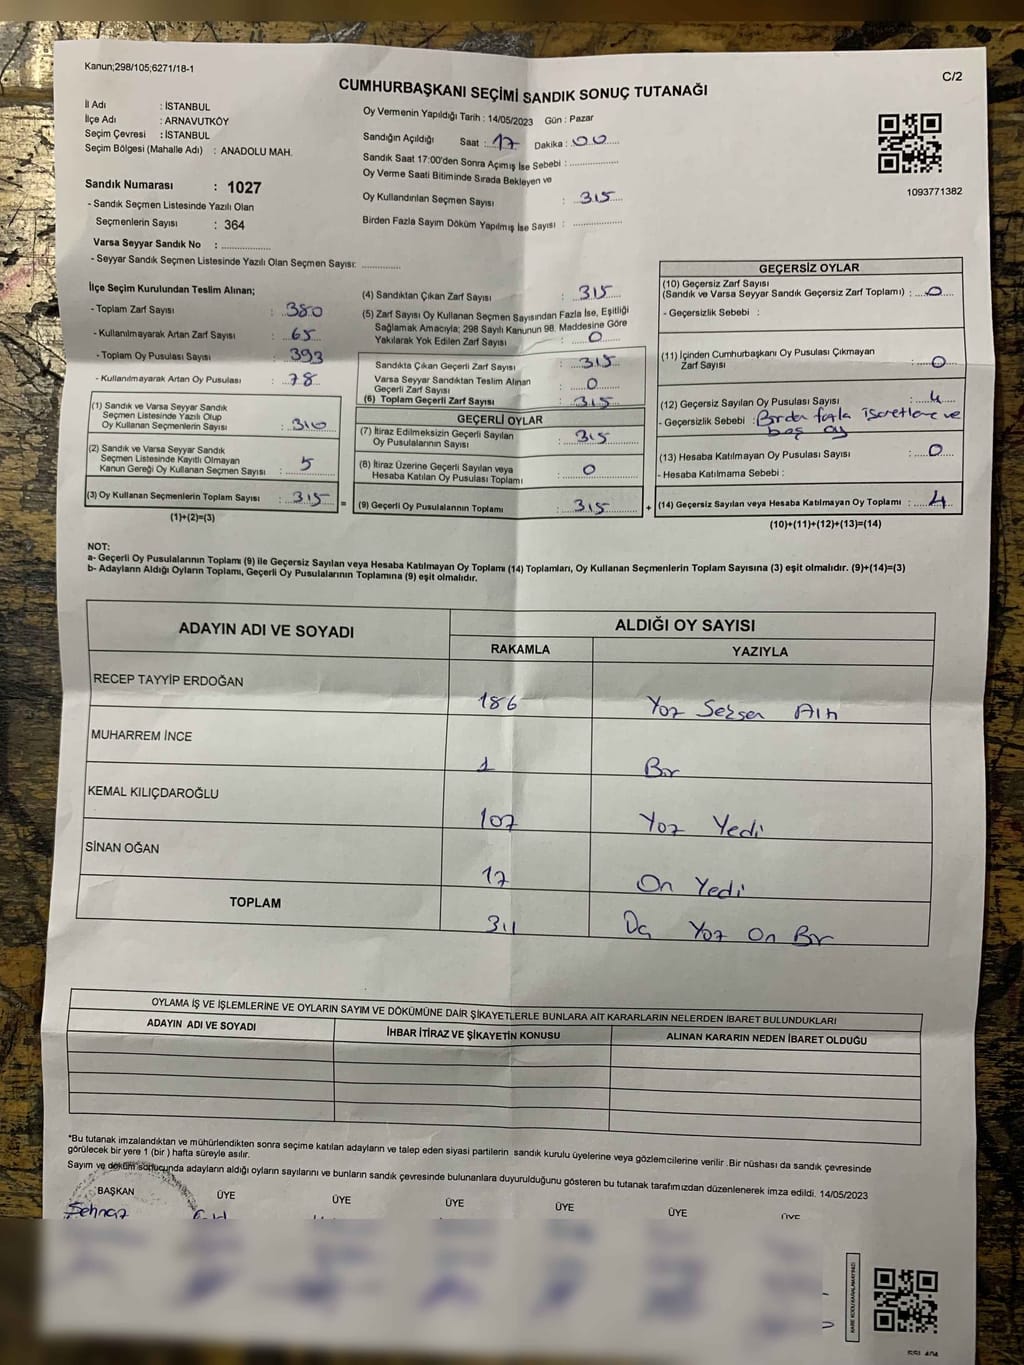 Kanun;298/105;6271/18-1
C/2
CUMHURBAŞKANI SEÇİMİ SANDIK SONUÇ TUTANAĞI
İl Adı : İSTANBUL
İlçe Adı : ARNAVUTKÖY
Seçim Çevresi : İSTANBUL
Seçim Bölgesi (Mahalle Adı) : ANADOLU MAH.
Sandık Numarası : 1027
- Sandık Seçmen Listesinde Yazılı Olan
Seçmenlerin Sayısı : 364
Varsa Seyyar Sandık No : ..............
- Seyyar Sandık Seçmen Listesinde Yazılı Olan Seçmen Sayısı: ............
Oy Vermenin Yapıldığı Tarih : 14/05/2023 Gün : Pazar
Sandığın Açıldığı Saat : 17 Dakika : 00
Sandık Saat 17:00'den Sonra Açımış İse Sebebi : ..............
Oy Verme Saati Bitiminde Sırada Bekleyen ve
Oy Kullandırılan Seçmen Sayısı : 315
Birden Fazla Sayım Döküm Yapılmış İse Sayısı : ..............
1093771382
İlçe Seçim Kurulundan Teslim Alınan;
- Toplam Zarf Sayısı : 380
- Kullanılmayarak Artan Zarf Sayısı : 65
- Toplam Oy Pusulası Sayısı : 393
- Kullanılmayarak Artan Oy Pusulası : 78
(1) Sandık ve Varsa Seyyar Sandık
Seçmen Listesinde Yazılı Olup
Oy Kullanan Seçmenlerin Sayısı : 310
(2) Sandık ve Varsa Seyyar Sandık
Seçmen Listesinde Kayıtlı Olmayan
Kanun Gereği Oy Kullanan Seçmen Sayısı : 5
(3) Oy Kullanan Seçmenlerin Toplam Sayısı : 315 =
(1)+(2)=(3)
(4) Sandıktan Çıkan Zarf Sayısı : 315
(5) Zarf Sayısı Oy Kullanan Seçmen Sayısından Fazla İse, Eşitliği
Sağlamak Amacıyla; 298 Sayılı Kanunun 98. Maddesine Göre
Yakılarak Yok Edilen Zarf Sayısı : 0
Sandıkta Çıkan Geçerli Zarf Sayısı : 315
Varsa Seyyar Sandıktan Teslim Alınan
Geçerli Zarf Sayısı : 0
(6) Toplam Geçerli Zarf Sayısı : 315
GEÇERLİ OYLAR
(7) İtiraz Edilmeksizin Geçerli Sayılan
Oy Pusulalarının Sayısı : 315
(8) İtiraz Üzerine Geçerli Sayılan veya
Hesaba Katılan Oy Pusulası Toplamı : 0
(9) Geçerli Oy Pusulalarının Toplamı : 315 +
GEÇERSİZ OYLAR
(10) Geçersiz Zarf Sayısı
(Sandık ve Varsa Seyyar Sandık Geçersiz Zarf Toplamı) : 0
- Geçersizlik Sebebi :
(11) İçinden Cumhurbaşkanı Oy Pusulası Çıkmayan
Zarf Sayısı : 0
(12) Geçersiz Sayılan Oy Pusulası Sayısı : 4
- Geçersizlik Sebebi : Birden fazla işaretleme ve
boş oy
(13) Hesaba Katılmayan Oy Pusulası Sayısı : 0
- Hesaba Katılmama Sebebi :
(14) Geçersiz Sayılan veya Hesaba Katılmayan Oy Toplamı : 4
(10)+(11)+(12)+(13)=(14)
NOT:
a- Geçerli Oy Pusulalarının Toplamı (9) ile Geçersiz Sayılan veya Hesaba Katılmayan Oy Toplamı (14) Toplamları, Oy Kullanan Seçmenlerin Toplam Sayısına (3) eşit olmalıdır. (9)+(14)=(3)
b- Adayların Aldığı Oyların Toplamı, Geçerli Oy Pusulalarının Toplamına (9) eşit olmalıdır.
ADAYIN ADI VE SOYADI ALDIĞI OY SAYISI
RAKAMLA YAZIYLA
RECEP TAYYİP ERDOĞAN 186 Yüz Seksen Altı
MUHARREM İNCE 1 Bir
KEMAL KILIÇDAROĞLU 107 Yüz Yedi
SİNAN OĞAN 17 On Yedi
TOPLAM 311 Üç Yüz On Bir
OYLAMA İŞ VE İŞLEMLERİNE VE OYLARIN SAYIM VE DÖKÜMÜNE DAİR ŞİKAYETLERLE BUNLARA AİT KARARLARIN NELERDEN İBARET BULUNDUKLARI
ADAYIN ADI VE SOYADI İHBAR İTİRAZ VE ŞİKAYETİN KONUSU ALINAN KARARIN NEDEN İBARET OLDUĞU
*Bu tutanak imzalandıktan ve mühürlendikten sonra seçime katılan adayların ve talep eden siyasi partilerin sandık kurulu üyelerine veya gözlemcilerine verilir .Bir nüshası da sandık çevresinde
görülecek bir yere 1 (bir ) hafta süreyle asılır.
Sayım ve döküm sonucunda adayların aldığı oyların sayılarını ve bunların sandık çevresinde bulunanlara duyurulduğunu gösteren bu tutanak tarafımızdan düzenlenerek imza edildi. 14/05/2023
BAŞKAN ÜYE ÜYE ÜYE ÜYE ÜYE ÜYE
Şehnaz